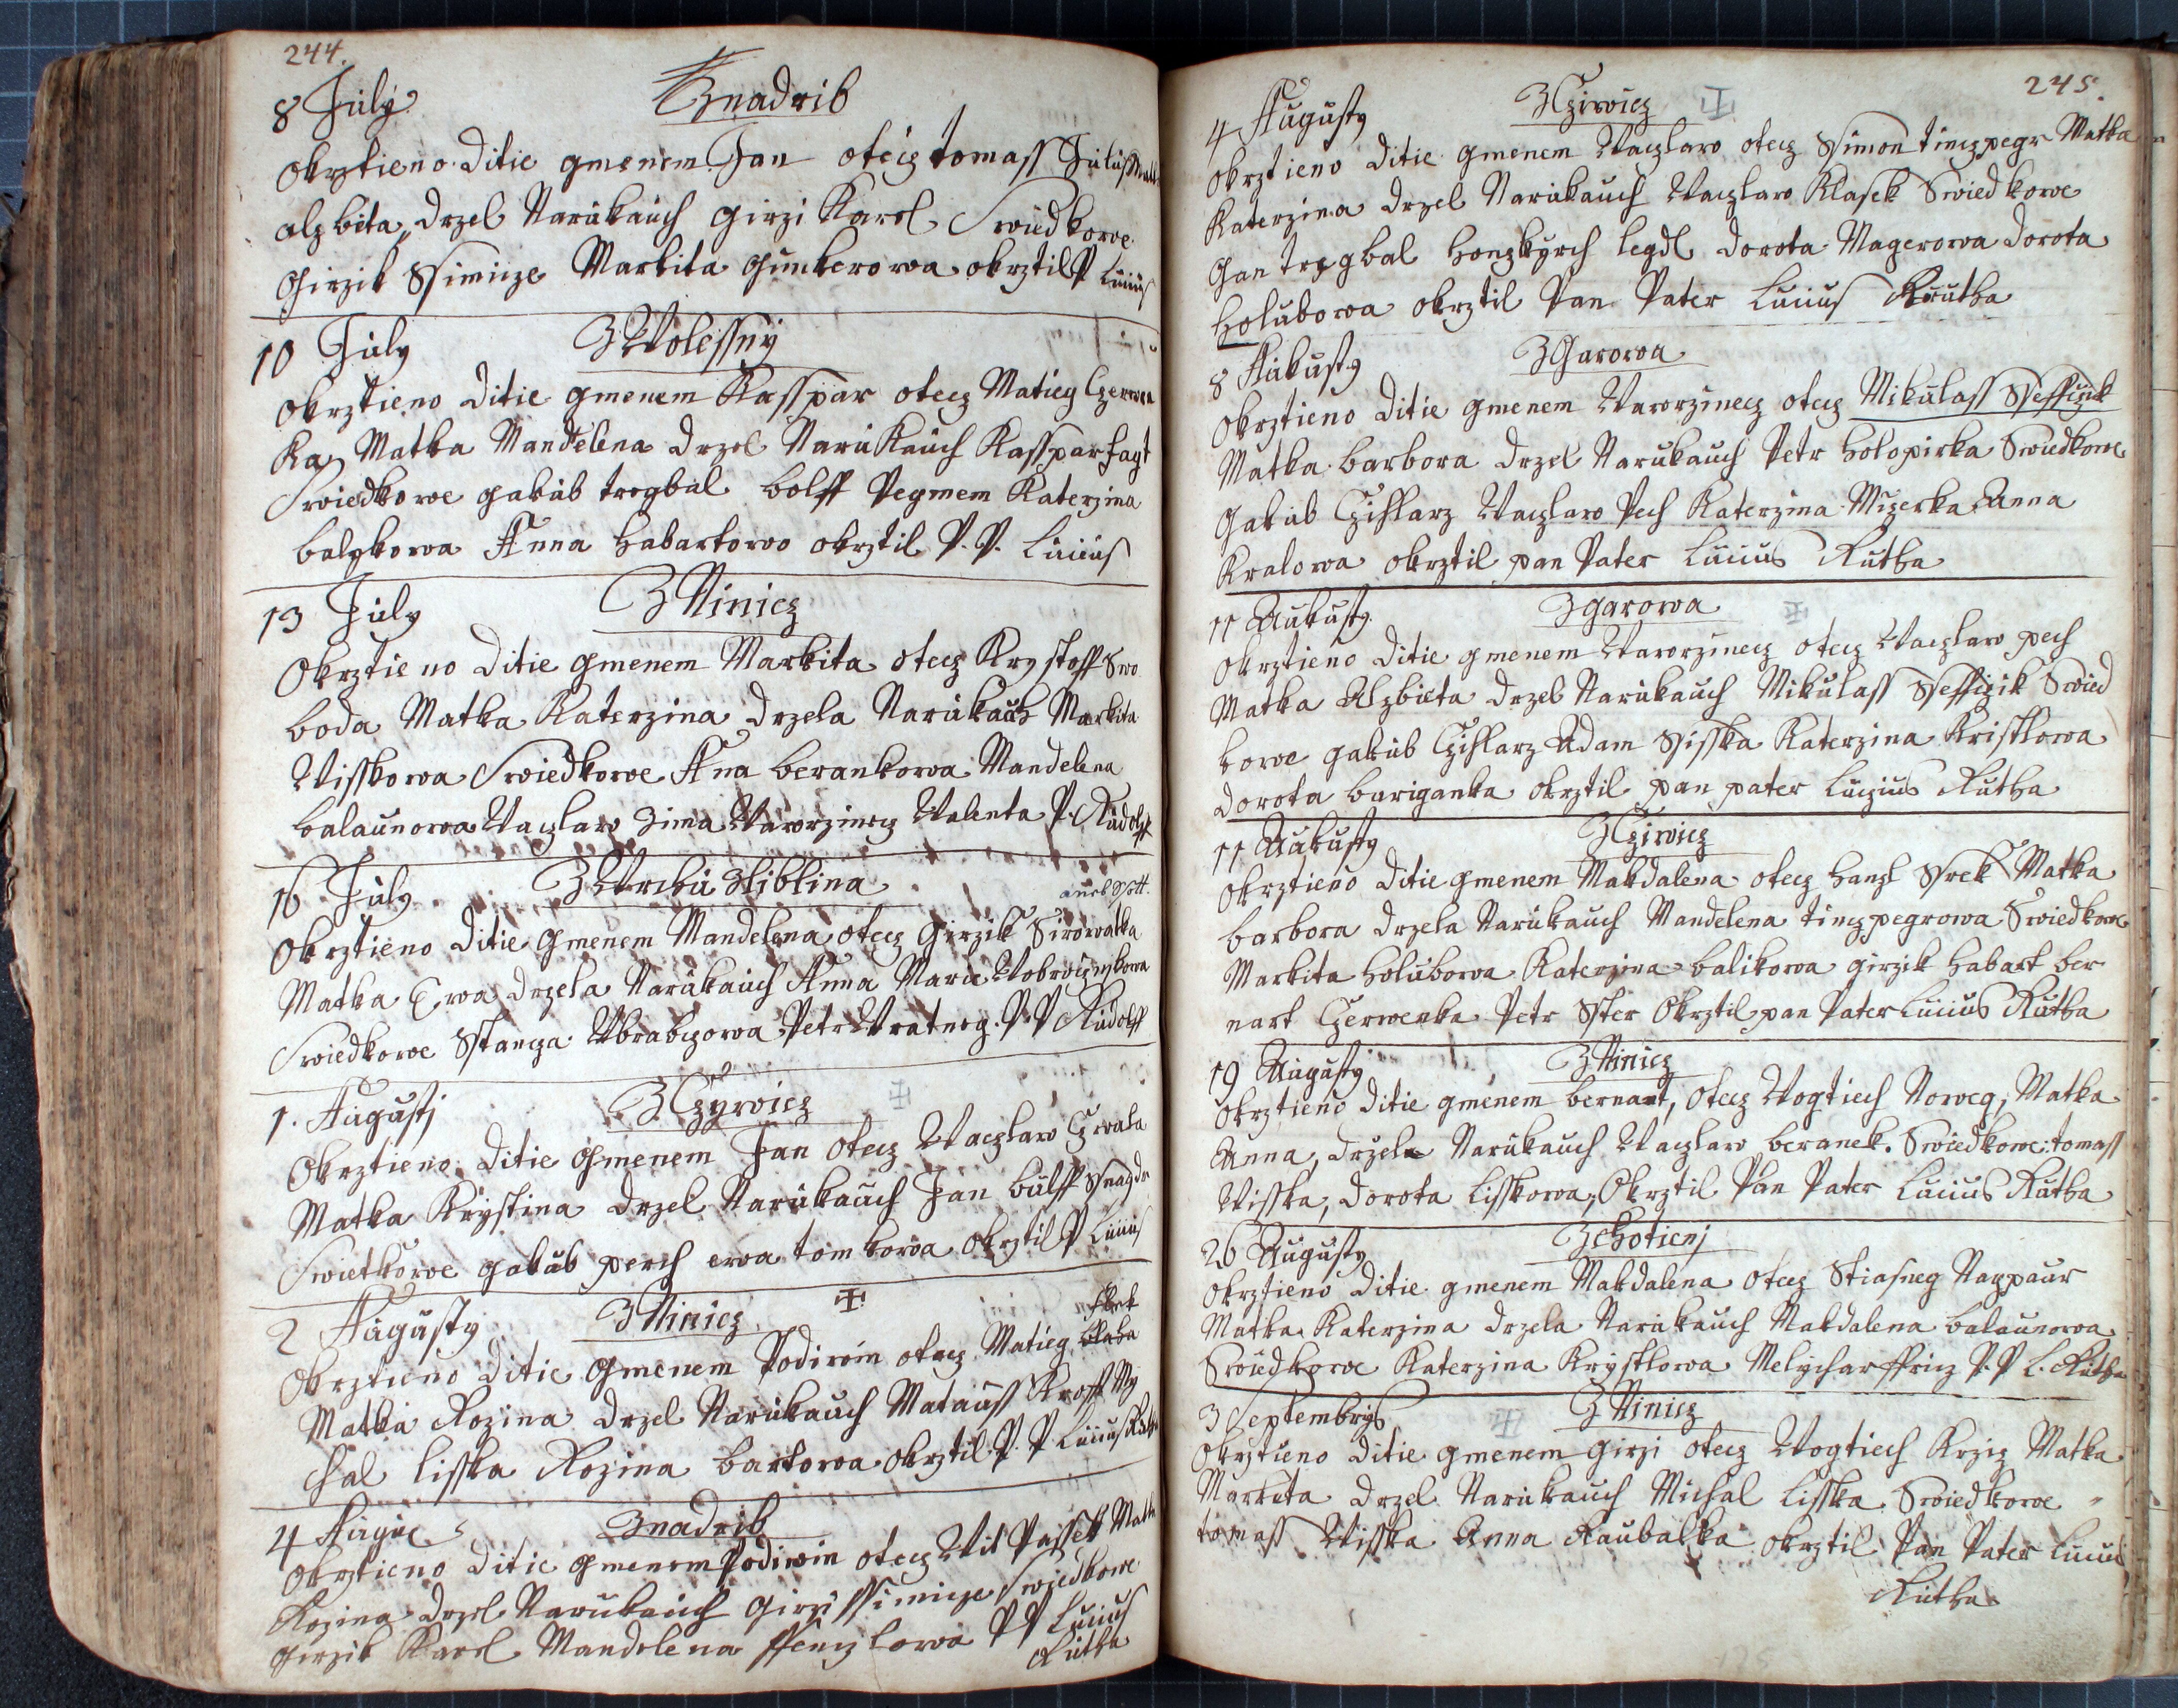 244.
8 July Znadrib
Okrztieno Ditie gmenem Jan otecz tomass Julius
alzbita, Drzel Narukauch Girzi Karel Swiedkowe
Girzik Ssimicze Markita Gunkerowa okrztil P Lucius
10 July ZWolessny
Okrztieno Ditie gmenem Kasspar otecz Matieg Czerwen
ka, Matka Mandelena Drzel Narukauch Kasspar fayt
Swiedkowe gakub tregbal bolff Pegmem Katerzina
balzkowa Anna habartowo okrztil P. P. Lucius
13 July ZNinicz
Okrztieno Ditie gmenem Markita otecz Krystoff Swo
boda Matka Katerzina Drzela Narukauch Markita
Wisskowa Swiedkowe Ana berankowa Mandelena
balaunowa Waczlaw Zima Wawrzinecz Walenta P. Rudolff
16 July ZWrchu Zliblina
Okrztieno Ditie Gmenem Mandelena otecz Girzik Sirowatka
Matka Ewa Drzela Narukauch Anna Maria
Swiedkowe Stancza Wrabczowa Petr Wratneg. P. P Rudolff
1. Augustj ZCzywicz
Okrztieno Ditie Gmenem Jan Otecz Waczlaw Czwala
Matka Krystina Drzel Narukauch Jan bulff
Swietkowe gakub perch ewa tomkowa Okrztil P Lucius
2 Augusty ZNinicz
Okrztieno Ditie Gmenem Podiwin otecz Matieg
Matka Rozina Drzel Narukauch Matauss Kroff My
chal lisska Rozina bartowa okrztil. P. P. Lucius Rutha
4 Znadrib
Okrztieno Ditie gmenem Podiwin otecz Wit Passek Matka
Rozina Drzel Narukauch Girzi Ssimicze Swiedkowe
Girzik Karel Mandelena P P Lucius
Rutha
245.
4 Augusty ZCziwicz
Okrztieno Ditie gmenem Waczlaw otecz Ssimon tinczpegr Matka
Katerzina Drzel Narukauch Waczlaw Klasek Swiedkowe
Gan tregbal honzkyrch legdl Dorota Magerowa Dorota
holubowa okrztil Pan Pater Lucius Rutha
8 Aukusty ZGarowa
Okrztieno Ditie gmenem Wawrzinecz otecz Mikulass Sseffczik
Matka barbora Drzel Narukauch Petr holopirka Swiedkowe
Gakub Czihlarz Waczlaw Pech Katerzina Mizerka Anna
Kralowa okrztil pan Pater Lucius Rutha
11 Aukusty Zgarowa
Okrztieno Ditie gmenem Wawrzinecz otecz Waczlaw pech
Matka Alzbieta Drzel Narukauch Mikulass Sseffczik Swied
kowe gakub Czihlarz Adam Ssisska Katerzina Kristlowa
Dorota bariganka okrztil pan pater Luczius Rutha
11 Aukusty ZCziwicz
Okrztieno Ditie gmenem Makdalena otecz hanzl Srek Matka
barbora Drzela Narukauch Mandelena tinczpegrowa Swiedkowe
Markita holubowa Katerzina balikowa girzik habart ber
nart Czerwenka Petr Ster Okrztil pan Pater Lucius Rutha
19 Augusty ZNinicz
Okrztieno Ditie gmenem bernart, Otecz Wogtiech Noweg, Matka
Anna, Drzela Narukauch Waczlaw beranek. Swiedkowe: tomass
Wisska, Dorota Lisskowa, Okrztil Pan Pater Lucius Rutha
26 Augusty Zchotienj
Okrztieno Ditie gmenem Makdalena Otecz Stiasneg Nappaur
Matka Katerzina Drzela Narukauch Makdalena balaunowa
Swiedkowe Katerzina Krystlowa Melychar ffricz P. P L. Rutha
3 Septembrys ZNinicz
Okrztieno Ditie gmenem Girzi otecz Wogtiech Krziz Matka
Markita Drzel Narukauch Michal Lisska Swiedkowe
tomass Wisska Anna Raubalka okrztil Pan Pater Lucius
Rutha